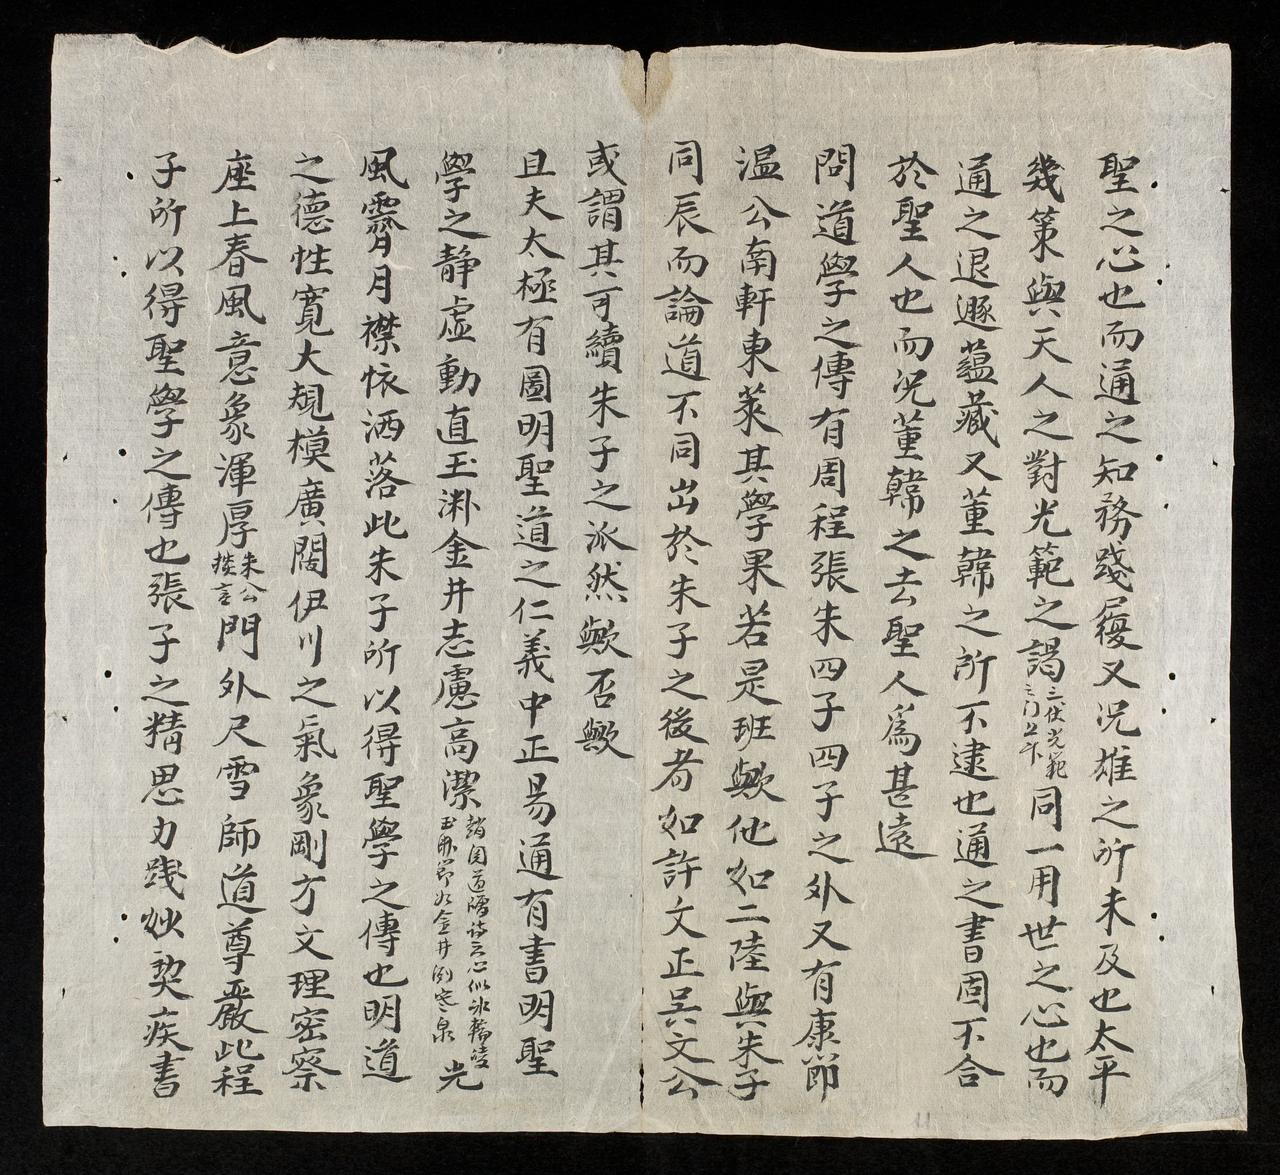 聖之心也而通之知務踐履又況雄之所未及也太平
幾策與天人之對光範之謁三伏光範之门上书同一用世之心也而
通之退遯蘊藏又董韓之所不逮也通之書固不合
於聖人也而況董韓之去聖人爲甚遠
問道學之傳有周程張朱四子四子之外又有康節
温公南軒東萊其學果若是班歟他如二陸與朱子
同辰而論道不同出於朱子之後者如許文正吳文公
或謂其可續朱子之派然歟否歟
且夫太極有圖明聖道之仁義中正易通有書明聖
學之静虛動直玉渊金井志慮高潔詩云心似冰輪玉淵節如金井寒泉光
風霽月月襟懐洒落此朱子所以得聖學之傳也明道
之德性寬大規模廣闊伊川之氣象剛方文理密察
座上春風意象渾厚朱公掞言門外尺雪師道尊嚴此程
子所以得聖學之傳也張子之精思力践妙契疾書